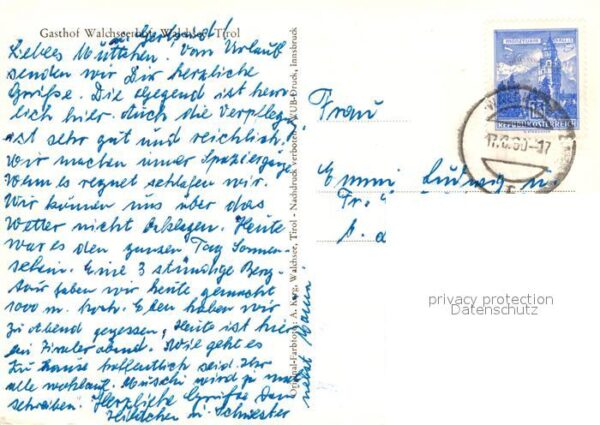 Gasthof Walchsee Walchsee, Tirol
u. Gertrud!
Liebes Muttchen! Vom Urlaub
senden wir Dir herzliche
Grüße. Die Gegend ist herr
lich hier. Auch die Verpfleg.
ist sehr gut und reichlich.
Wir machen immer Spaziergänge
Wenn es regnet schlafen wir.
Wir können uns über das
Wetter nicht beklagen. Heute
war es den ganzen Tag Sonnen-
schein. Eine 3 stündige Berg-
tour haben wir heute gemacht
1000 m. hoch. Eben haben wir
zu abend gegessen, Heute ist hier
ein Abend. Wie geht es
zu Hause hoffentlich seid Ihr
alle wohlauf. Muschi wird ja mal
schreiben. Herzliche Grüße Dein
u. Schwester
nebst
Original-Farbfoto: A. Karg, Walchsee, Tirol - Nachdruck verboten - WUB-Druck, Innsbruck
Frau
Emmi Ludwig
REPUBLIK ÖSTERREICH
privacy protection
Datenschutz